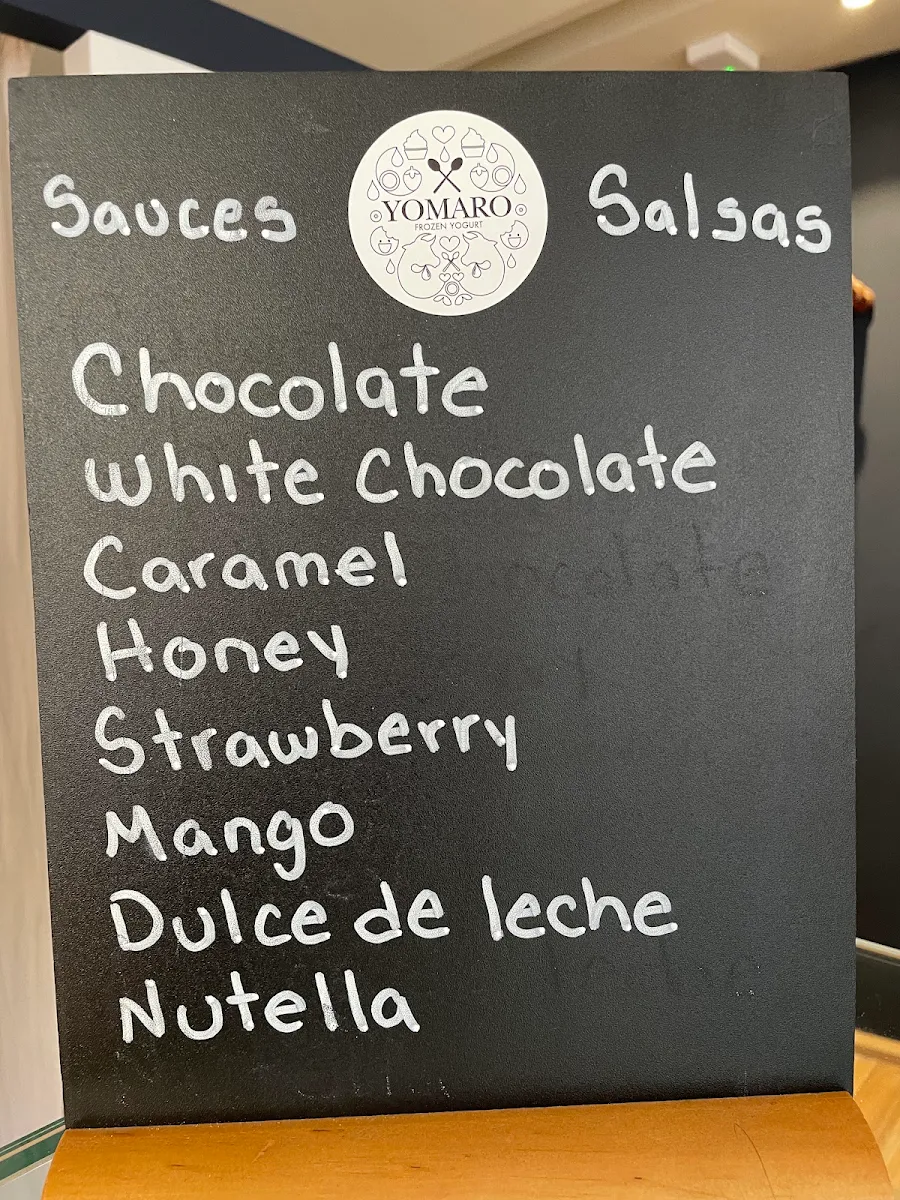 Sauces
YOMARO
FROZEN YOGURT
Salsas
Chocolate
White Chocolate
Caramel
Honey
Strawberry
Mango
Dulce de leche
Nutella